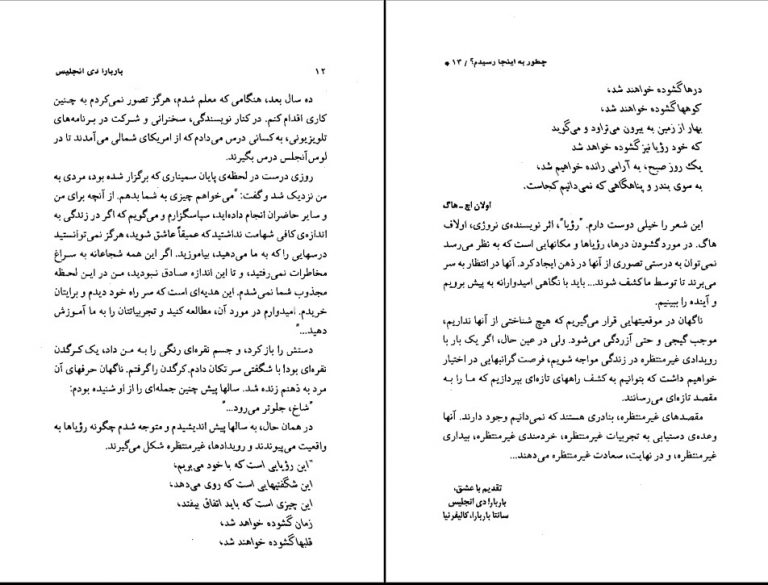 ۱۲ باربارا دی انجلیس
ده سال بعد، هنگامی که معلم شدم، هرگز تصور نمی‌کردم به چنین
کاری اقدام کنم. در کنار نویسندگی، سخنرانی و شرکت در برنامه‌های
تلویزیونی، به کسانی درس می‌دادم که از امریکای شمالی می‌آمدند تا در
لوس‌آنجلس درس بگیرند.
روزی درست در لحظه‌ی پایان سمیناری که برگزار شده بود، مردی به
من نزدیک شد و گفت: "می‌خواهم چیزی به شما بدهم. از آنچه برای من
و سایر حاضران انجام داده‌اید، سپاسگزارم و می‌گویم که اگر در زندگی به
اندازه‌ی کافی شهامت نداشتید که عمیقاً عاشق شوید، هرگز نمی‌توانستید
درسهایی را که به ما می‌دهید، بیاموزید. اگر این همه شجاعانه به سراغ
مخاطرات نمی‌رفتید، و تا این اندازه صادق نبودید، من در این لحظه
مجذوب شما نمی‌شدم. این هدیه‌ای است که سر راه خود دیدم و برایتان
خریدم. امیدوارم در مورد آن، مطالعه کنید و تجربیاتتان را به ما آموزش
دهید..."
دستش را باز کرد، و جسم نقره‌ای رنگی را به من داد، یک کرگدن
نقره‌ای بود! با شگفتی سر تکان دادم. کرگدن را گرفتم. ناگهان حرفهای آن
مرد به ذهنم زنده شد. سالها پیش چنین جمله‌ای را از او شنیده بودم:
"شاخ، جلوتر می‌رود..."
در همان حال، به سالها پیش اندیشیدم و متوجه شدم چگونه رؤیاها به
واقعیت می‌پیوندند و رویدادها، غیرمنتظره شکل می‌گیرند.
"این رؤیایی است که با خود می‌بریم،
این شگفتیهایی است که روی می‌دهد،
این چیزی است که باید اتفاق بیفتد،
زمان گشوده خواهد شد،
قلبها گشوده خواهند شد،
چطور به اینجا رسیدم؟ / ۱۳ *
درها گشوده خواهند شد،
کوهها گشوده خواهند شد،
بهار از زمین به بیرون می‌تراود و می‌گوید
که خود رؤیا نیز گشوده خواهد شد
یک روز صبح، به آرامی رانده خواهیم شد،
به سوی بندر و پناهگاهی که نمی‌دانیم کجاست.
اولان اچ ـ هاگ
این شعر را خیلی دوست دارم. "رؤیا"، اثر نویسنده‌ی نروژی، اولاف
هاگ. در مورد گشودن درها، رؤیاها و مکانهایی است که به نظر می‌رسد
نمی‌توان به درستی تصوری از آنها در ذهن ایجاد کرد. آنها در انتظار به سر
می‌برند تا توسط ما کشف شوند... باید با نگاهی امیدوارانه به پیش برویم
و آینده را ببینیم.
ناگهان در موقعیتهایی قرار می‌گیریم که هیچ شناختی از آنها نداریم،
موجب گیجی و حتی آزردگی می‌شود. ولی در عین حال، اگر یک بار با
رویدادی غیرمنتظره در زندگی مواجه شویم، فرصت گرانبهایی در اختیار
خواهیم داشت که بتوانیم به کشف راههای تازه‌ای بپردازیم که ما را به
مقصد تازه‌ای می‌رسانند.
مقصدهای غیرمنتظره، بنادری هستند که نمی‌دانیم وجود دارند. آنها
وعده‌ی دستیابی به تجربیات غیرمنتظره، خردمندی غیرمنتظره، بیداری
غیرمنتظره، و در نهایت، سعادت غیرمنتظره می‌دهند...
تقدیم با عشق،
باربارا دی انجلیس
سانتا باربارا، کالیفرنیا